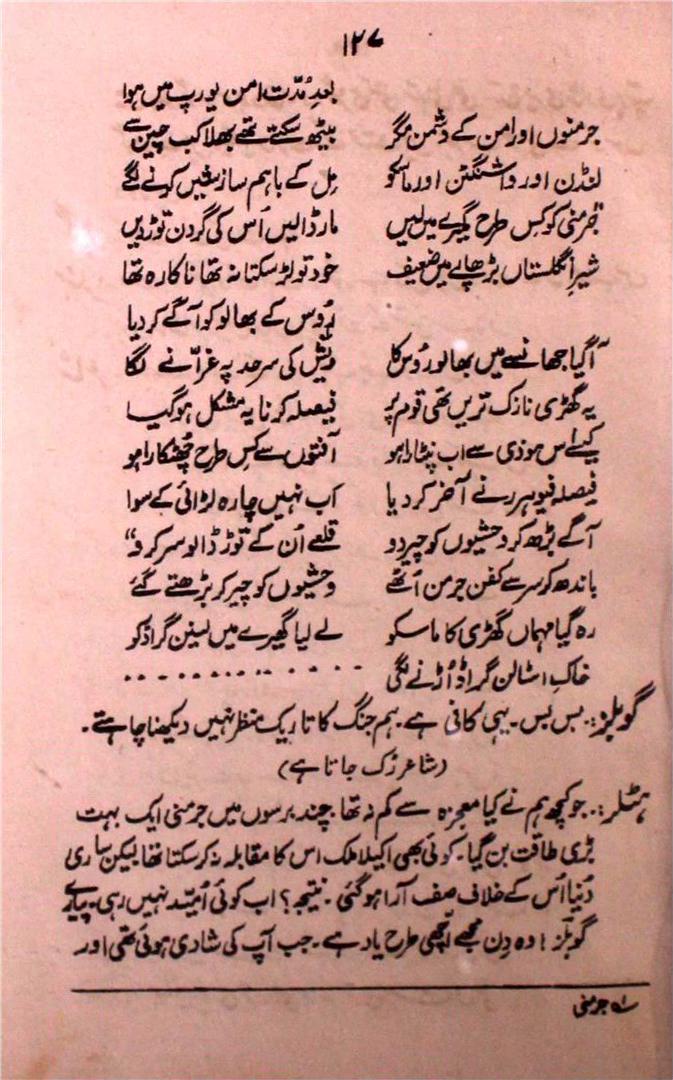 ۱۲۷
بعدِ مُدّت امن یورپ میں ہوا
جرمنوں اور امن کے دشمن مگر بیٹھ سکتے تھے بھلا کب چین سے
لنڈن اور واشنگٹن اور ماسکو مِل کے باہم سازشیں کرنے لگے
"جرمنی کو کِس طرح گھیرے میں لیں مار ڈالیں اُس کی گردن توڑ دیں
شیرِ انگلستاں بڑھاپے میں ضعیف خود تو لڑ سکتا نہ تھا ناکارہ تھا
رُوس کے بھالو کو آگے کر دیا
آگیا جھانسے میں بھالو رُوس کا دیش کی سرحد پہ غرّانے لگا
یہ گھڑی نازک ترین تھی قوم پر فیصلہ کرنا یہ مشکل ہو گیا
کیسے اس موذی سے اب نپٹارا ہو آفتوں سے کِس طرح چُھٹکارا ہو
فیصلہ فیوہرر نے آخر کر دیا اب نہیں چارہ لڑائی کے سوا
آگے بڑھ کر وحشیوں کو چیر دو قلعے اُن کے توڑ ڈالو سر کرو"
باندھ کر سر سے کفن جرمن اُٹھے وحشیوں کو چیر کر بڑھتے گئے
رہ گیا مہماں گھڑی کا ماسکو لے لیا گھیرے میں لینن گراڈ کو
خاک اسٹالن گراڈ اُڑنے لگی ..............
گوبلز:۔ بس بس۔ یہی کافی ہے۔ ہم جنگ کا تاریک منظر نہیں دیکھنا چاہتے۔
(شاعر رُک جاتا ہے)
ہٹلر:۔ جو کچھ ہم نے کیا معجزہ سے کم نہ تھا۔ چند برسوں میں جرمنی ایک بہت
بڑی طاقت بن گیا۔ کوئی بھی اکیلا ملک اس کا مقابلہ نہ کر سکتا تھا لیکن ساری
دُنیا اُس کے خلاف صف آرا ہو گئی۔ نتیجہ؟ اب کوئی اُمید نہیں رہی۔ پیارے
گوبلز! وہ دِن مجھے اچھی طرح یاد ہے۔ جب آپ کی شادی ہوئی تھی اور
۱؎ جرمنی